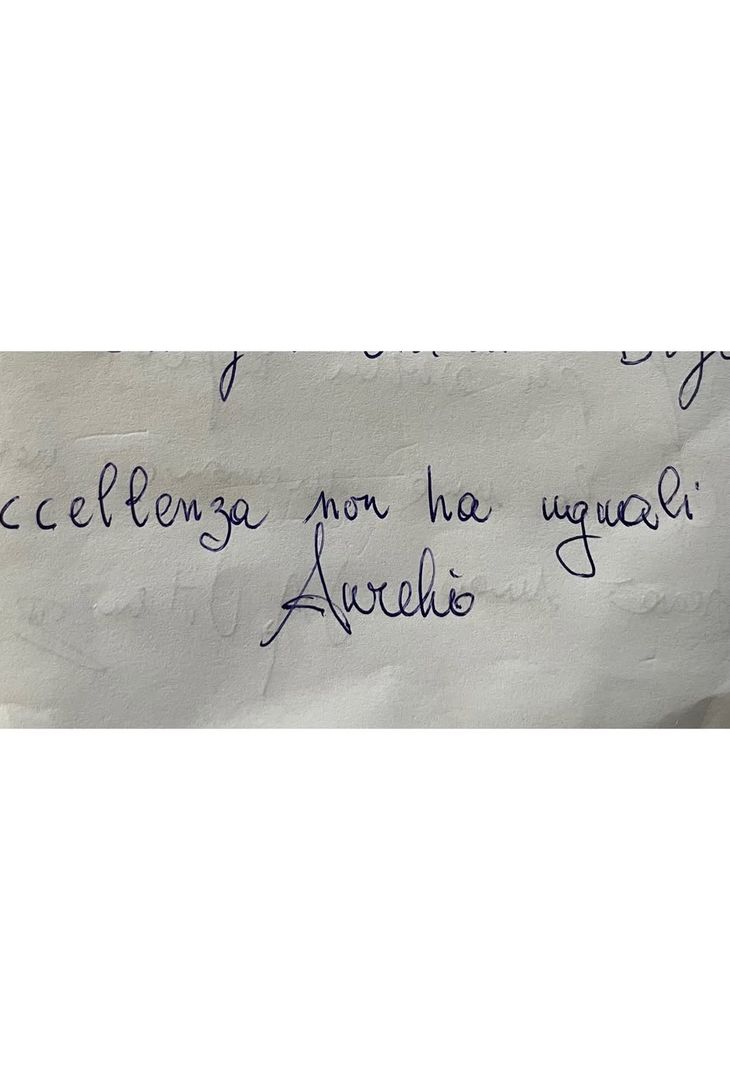 ccellenza non ha uguali
Aurelio